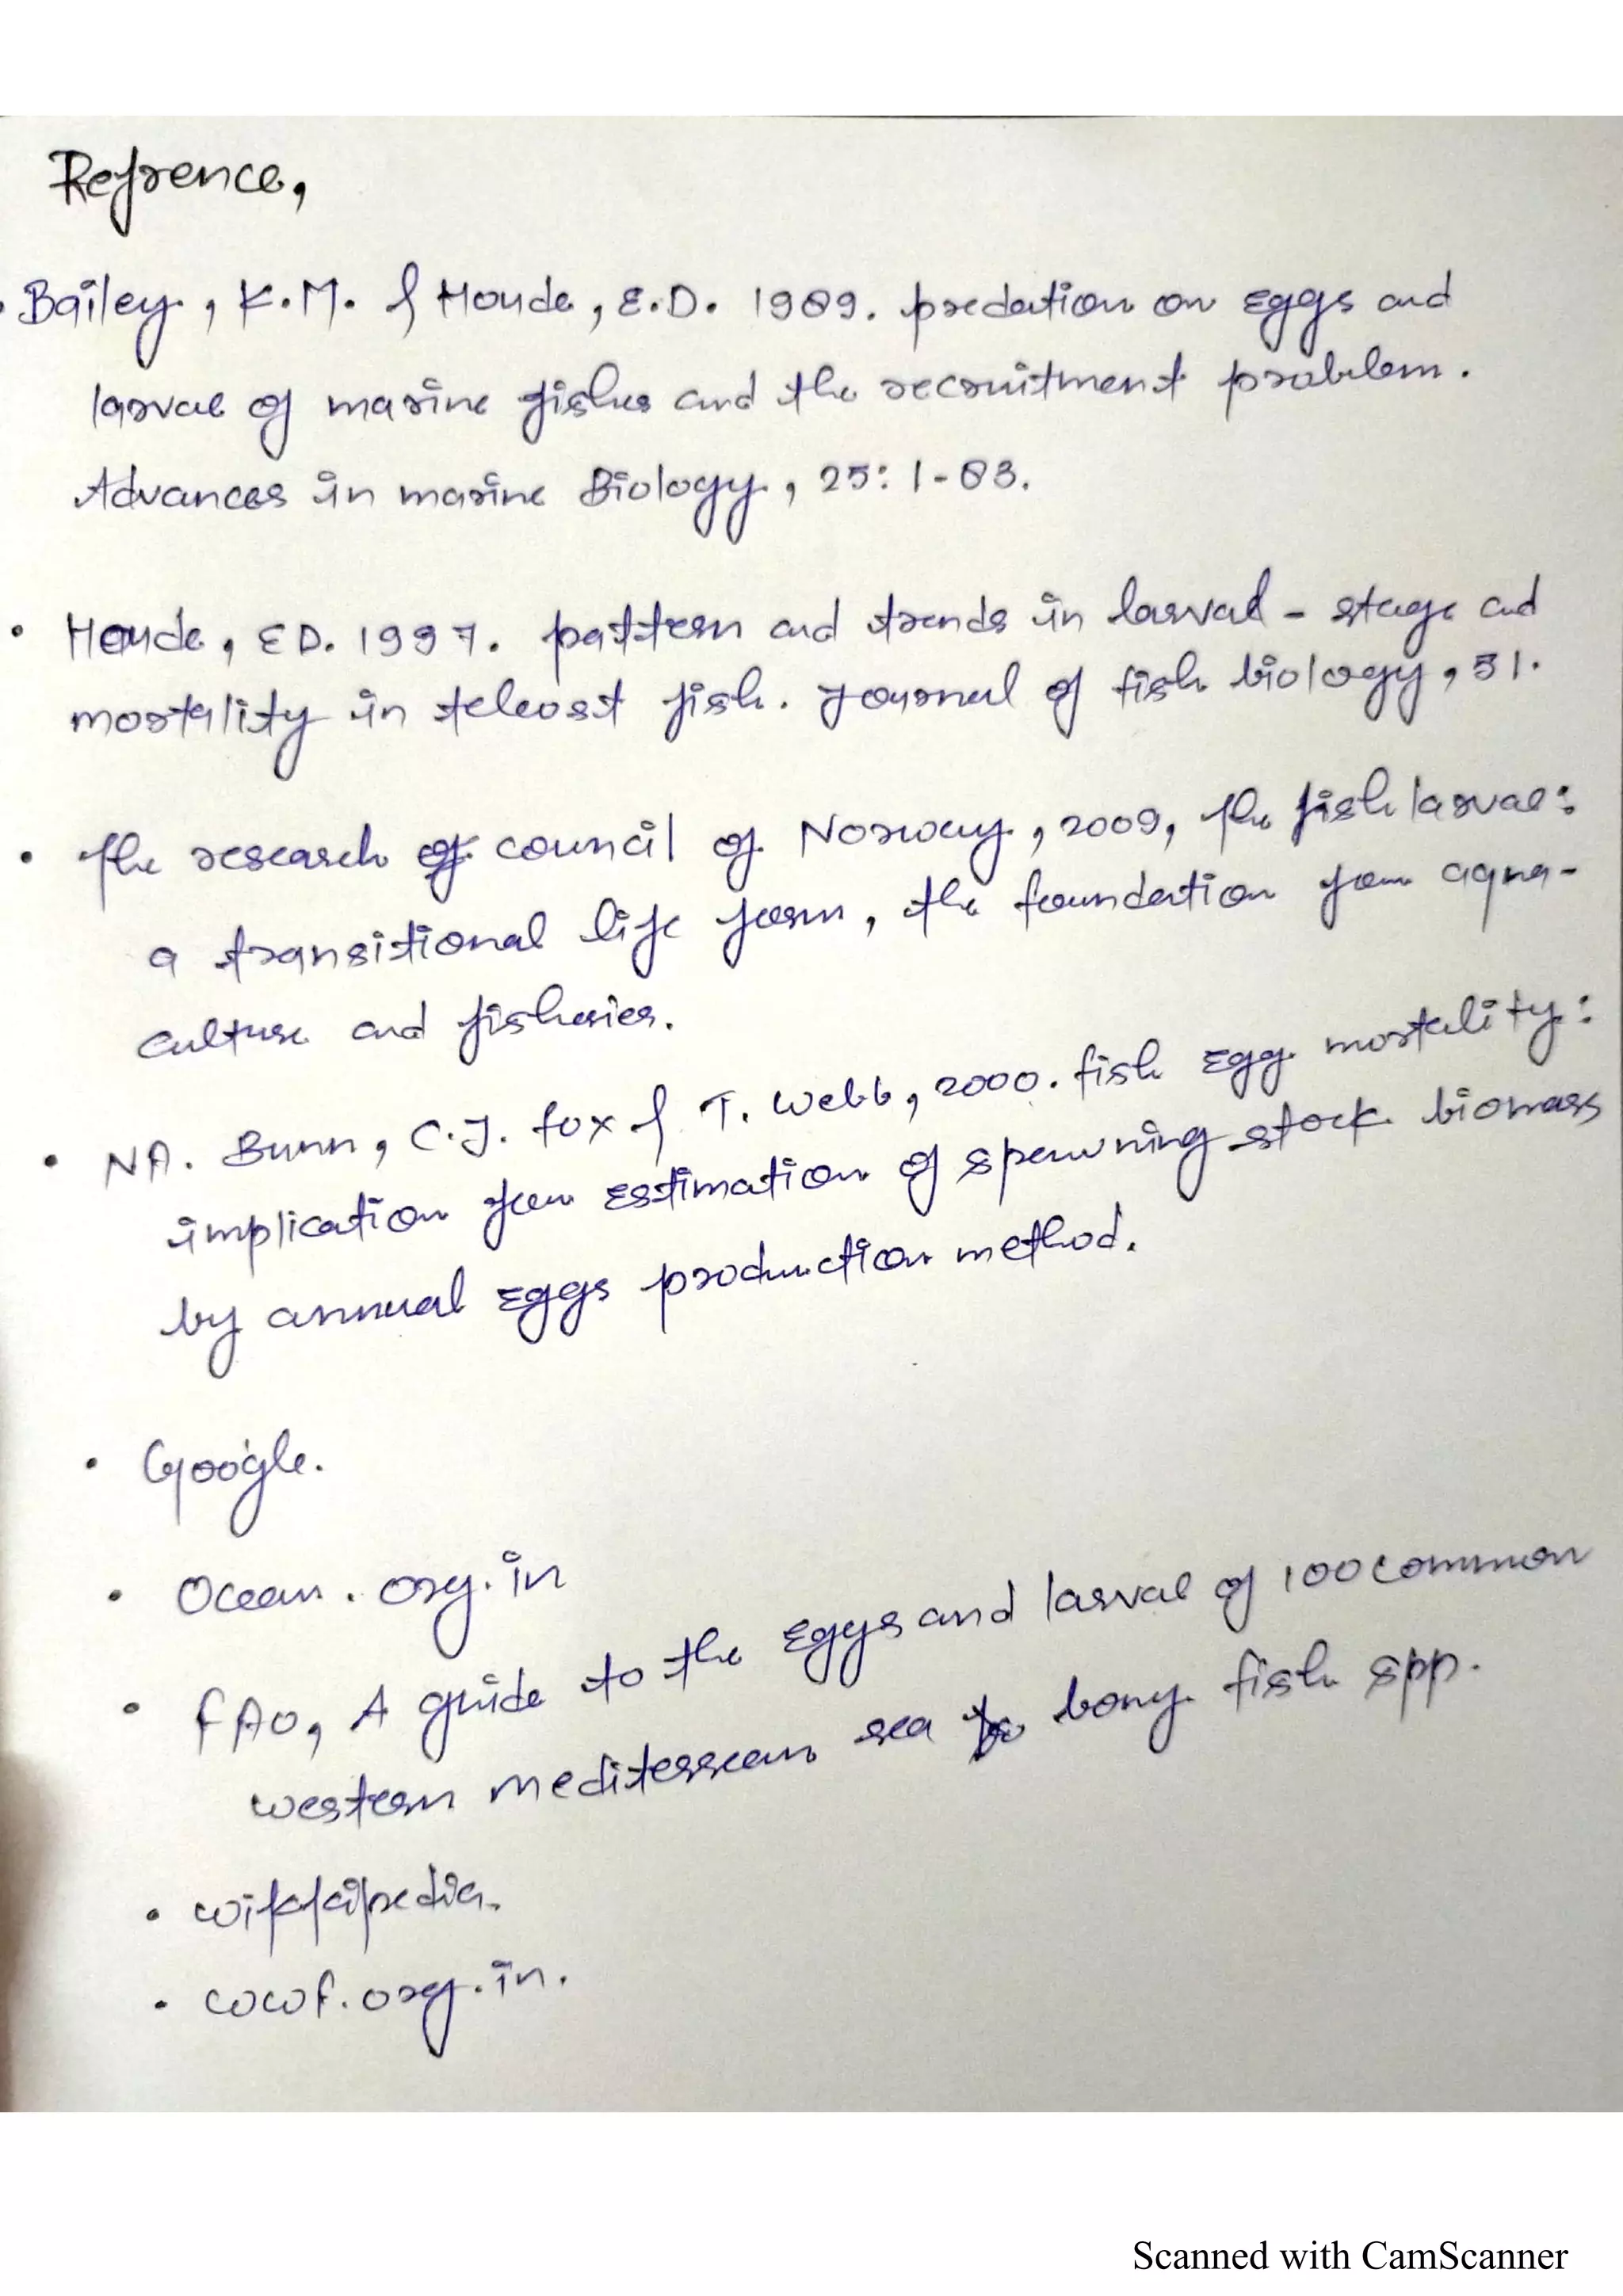 Refrence,
• Bailey, K.M. & Houde, E.D. 1989. predation on Eggs and
larvae of marine fishes and the recruitment problem.
Advances in marine Biology, 25: 1-83.
• Houde, ED. 1997. pattern and trends in larval - stage and
mortality in teleost fish. Journal of fish biology, 51.
• The research of council of Norway, 2009, The fish larvae:
a transitional life form, the foundation for aqua-
culture and fisheries.
• NA. Bunn, C.J. fox & T. Webb, 2000. fish Egg mortality:
implication for Estimation of spawning stock biomass
by annual Eggs production method.
• Google.
• Ocean. org. in
• FAO, A guide to the Eggs and larvae of 100 common
western mediterrean sea bony fish spp.
• wikkipedia.
• cowf. org. in.
Scanned with CamScanner